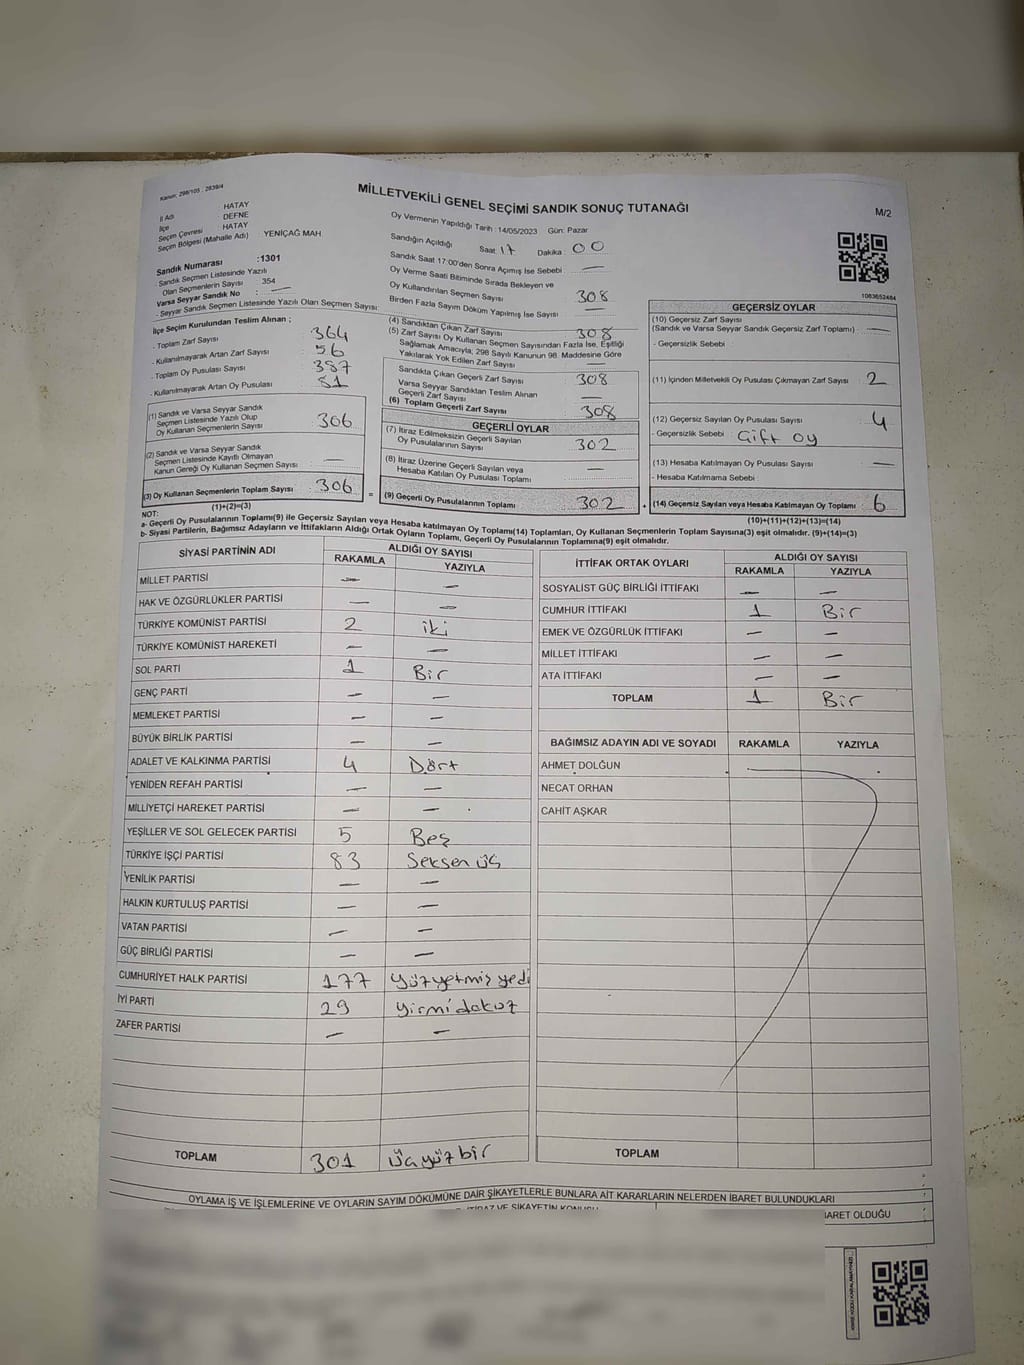 Kanun: 298/105 : 2839/4
MİLLETVEKİLİ GENEL SEÇİMİ SANDIK SONUÇ TUTANAĞI
M/2
İl Adı HATAY
İlçe DEFNE
Seçim Çevresi HATAY
Seçim Bölgesi (Mahalle Adı) YENİÇAĞ MAH
Sandık Numarası :1301
Sandık Seçmen Listesinde Yazılı
Olan Seçmenlerin Sayısı 354
Varsa Seyyar Sandık No : —
- Seyyar Sandık Seçmen Listesinde Yazılı Olan Seçmen Sayısı:
İlçe Seçim Kurulundan Teslim Alınan ;
- Toplam Zarf Sayısı 364
- Kullanılmayarak Artan Zarf Sayısı 56
- Toplam Oy Pusulası Sayısı 387
- Kullanılmayarak Artan Oy Pusulası 81
(1) Sandık ve Varsa Seyyar Sandık
Seçmen Listesinde Yazılı Olup
Oy Kullanan Seçmenlerin Sayısı 306
(2) Sandık ve Varsa Seyyar Sandık
Seçmen Listesinde Kayıtlı Olmayan
Kanun Gereği Oy Kullanan Seçmen Sayısı —
(3) Oy Kullanan Seçmenlerin Toplam Sayısı 306
(1)+(2)=(3)
Oy Vermenin Yapıldığı Tarih : 14/05/2023 Gün: Pazar
Sandığın Açıldığı Saat 17 Dakika : 00
Sandık Saat 17:00'den Sonra Açımış İse Sebebi : —
Oy Verme Saati Bitiminde Sırada Bekleyen ve
Oy Kullandırılan Seçmen Sayısı 308
Birden Fazla Sayım Döküm Yapılmış İse Sayısı : —
(4) Sandıktan Çıkan Zarf Sayısı 308
(5) Zarf Sayısı Oy Kullanan Seçmen Sayısından Fazla İse, Eşitliği
Sağlamak Amacıyla; 298 Sayılı Kanunun 98. Maddesine Göre
Yakılarak Yok Edilen Zarf Sayısı —
Sandıkta Çıkan Geçerli Zarf Sayısı 308
Varsa Seyyar Sandıktan Teslim Alınan
Geçerli Zarf Sayısı —
(6) Toplam Geçerli Zarf Sayısı 308
GEÇERLİ OYLAR
(7) İtiraz Edilmeksizin Geçerli Sayılan
Oy Pusulalarının Sayısı 302
(8) İtiraz Üzerine Geçerli Sayılan veya
Hesaba Katılan Oy Pusulası Toplamı —
= (9) Geçerli Oy Pusulalarının Toplamı 302
1083652484
GEÇERSİZ OYLAR
(10) Geçersiz Zarf Sayısı
(Sandık ve Varsa Seyyar Sandık Geçersiz Zarf Toplamı) —
- Geçersizlik Sebebi :
(11) İçinden Milletvekili Oy Pusulası Çıkmayan Zarf Sayısı 2
(12) Geçersiz Sayılan Oy Pusulası Sayısı 4
- Geçersizlik Sebebi : Çift oy
(13) Hesaba Katılmayan Oy Pusulası Sayısı —
- Hesaba Katılmama Sebebi :
+ (14) Geçersiz Sayılan veya Hesaba Katılmayan Oy Toplamı 6
(10)+(11)+(12)+(13)=(14)
NOT:
a- Geçerli Oy Pusulalarının Toplamı(9) ile Geçersiz Sayılan veya Hesaba katılmayan Oy Toplamı(14) Toplamları, Oy Kullanan Seçmenlerin Toplam Sayısına(3) eşit olmalıdır. (9)+(14)=(3)
b- Siyasi Partilerin, Bağımsız Adayların ve İttifakların Aldığı Ortak Oyların Toplamı, Geçerli Oy Pusulalarının Toplamına(9) eşit olmalıdır.
SİYASİ PARTİNİN ADI ALDIĞI OY SAYISI
RAKAMLA YAZIYLA
MİLLET PARTİSİ — —
HAK VE ÖZGÜRLÜKLER PARTİSİ — —
TÜRKİYE KOMÜNİST PARTİSİ 2 iki
TÜRKİYE KOMÜNİST HAREKETİ — —
SOL PARTİ 1 Bir
GENÇ PARTİ — —
MEMLEKET PARTİSİ — —
BÜYÜK BİRLİK PARTİSİ — —
ADALET VE KALKINMA PARTİSİ 4 Dört
YENİDEN REFAH PARTİSİ — —
MİLLİYETÇİ HAREKET PARTİSİ — —
YEŞİLLER VE SOL GELECEK PARTİSİ 5 Beş
TÜRKİYE İŞÇİ PARTİSİ 83 Seksen üç
YENİLİK PARTİSİ — —
HALKIN KURTULUŞ PARTİSİ — —
VATAN PARTİSİ — —
GÜÇ BİRLİĞİ PARTİSİ — —
CUMHURİYET HALK PARTİSİ 177 Yüzyetmiş yedi
İYİ PARTİ 29 Yirmi dokuz
ZAFER PARTİSİ — —
TOPLAM 301 Üçyüz bir
İTTİFAK ORTAK OYLARI ALDIĞI OY SAYISI
RAKAMLA YAZIYLA
SOSYALİST GÜÇ BİRLİĞİ İTTİFAKI — —
CUMHUR İTTİFAKI 1 Bir
EMEK VE ÖZGÜRLÜK İTTİFAKI — —
MİLLET İTTİFAKI — —
ATA İTTİFAKI — —
TOPLAM 1 Bir
BAĞIMSIZ ADAYIN ADI VE SOYADI RAKAMLA YAZIYLA
AHMET DOLĞUN
NECAT ORHAN
CAHİT AŞKAR
TOPLAM
OYLAMA İŞ VE İŞLEMLERİNE VE OYLARIN SAYIM DÖKÜMÜNE DAİR ŞİKAYETLERLE BUNLARA AİT KARARLARIN NELERDEN İBARET BULUNDUKLARI
İTİRAZ VE ŞİKAYETİN KONUSU
BARET OLDUĞU